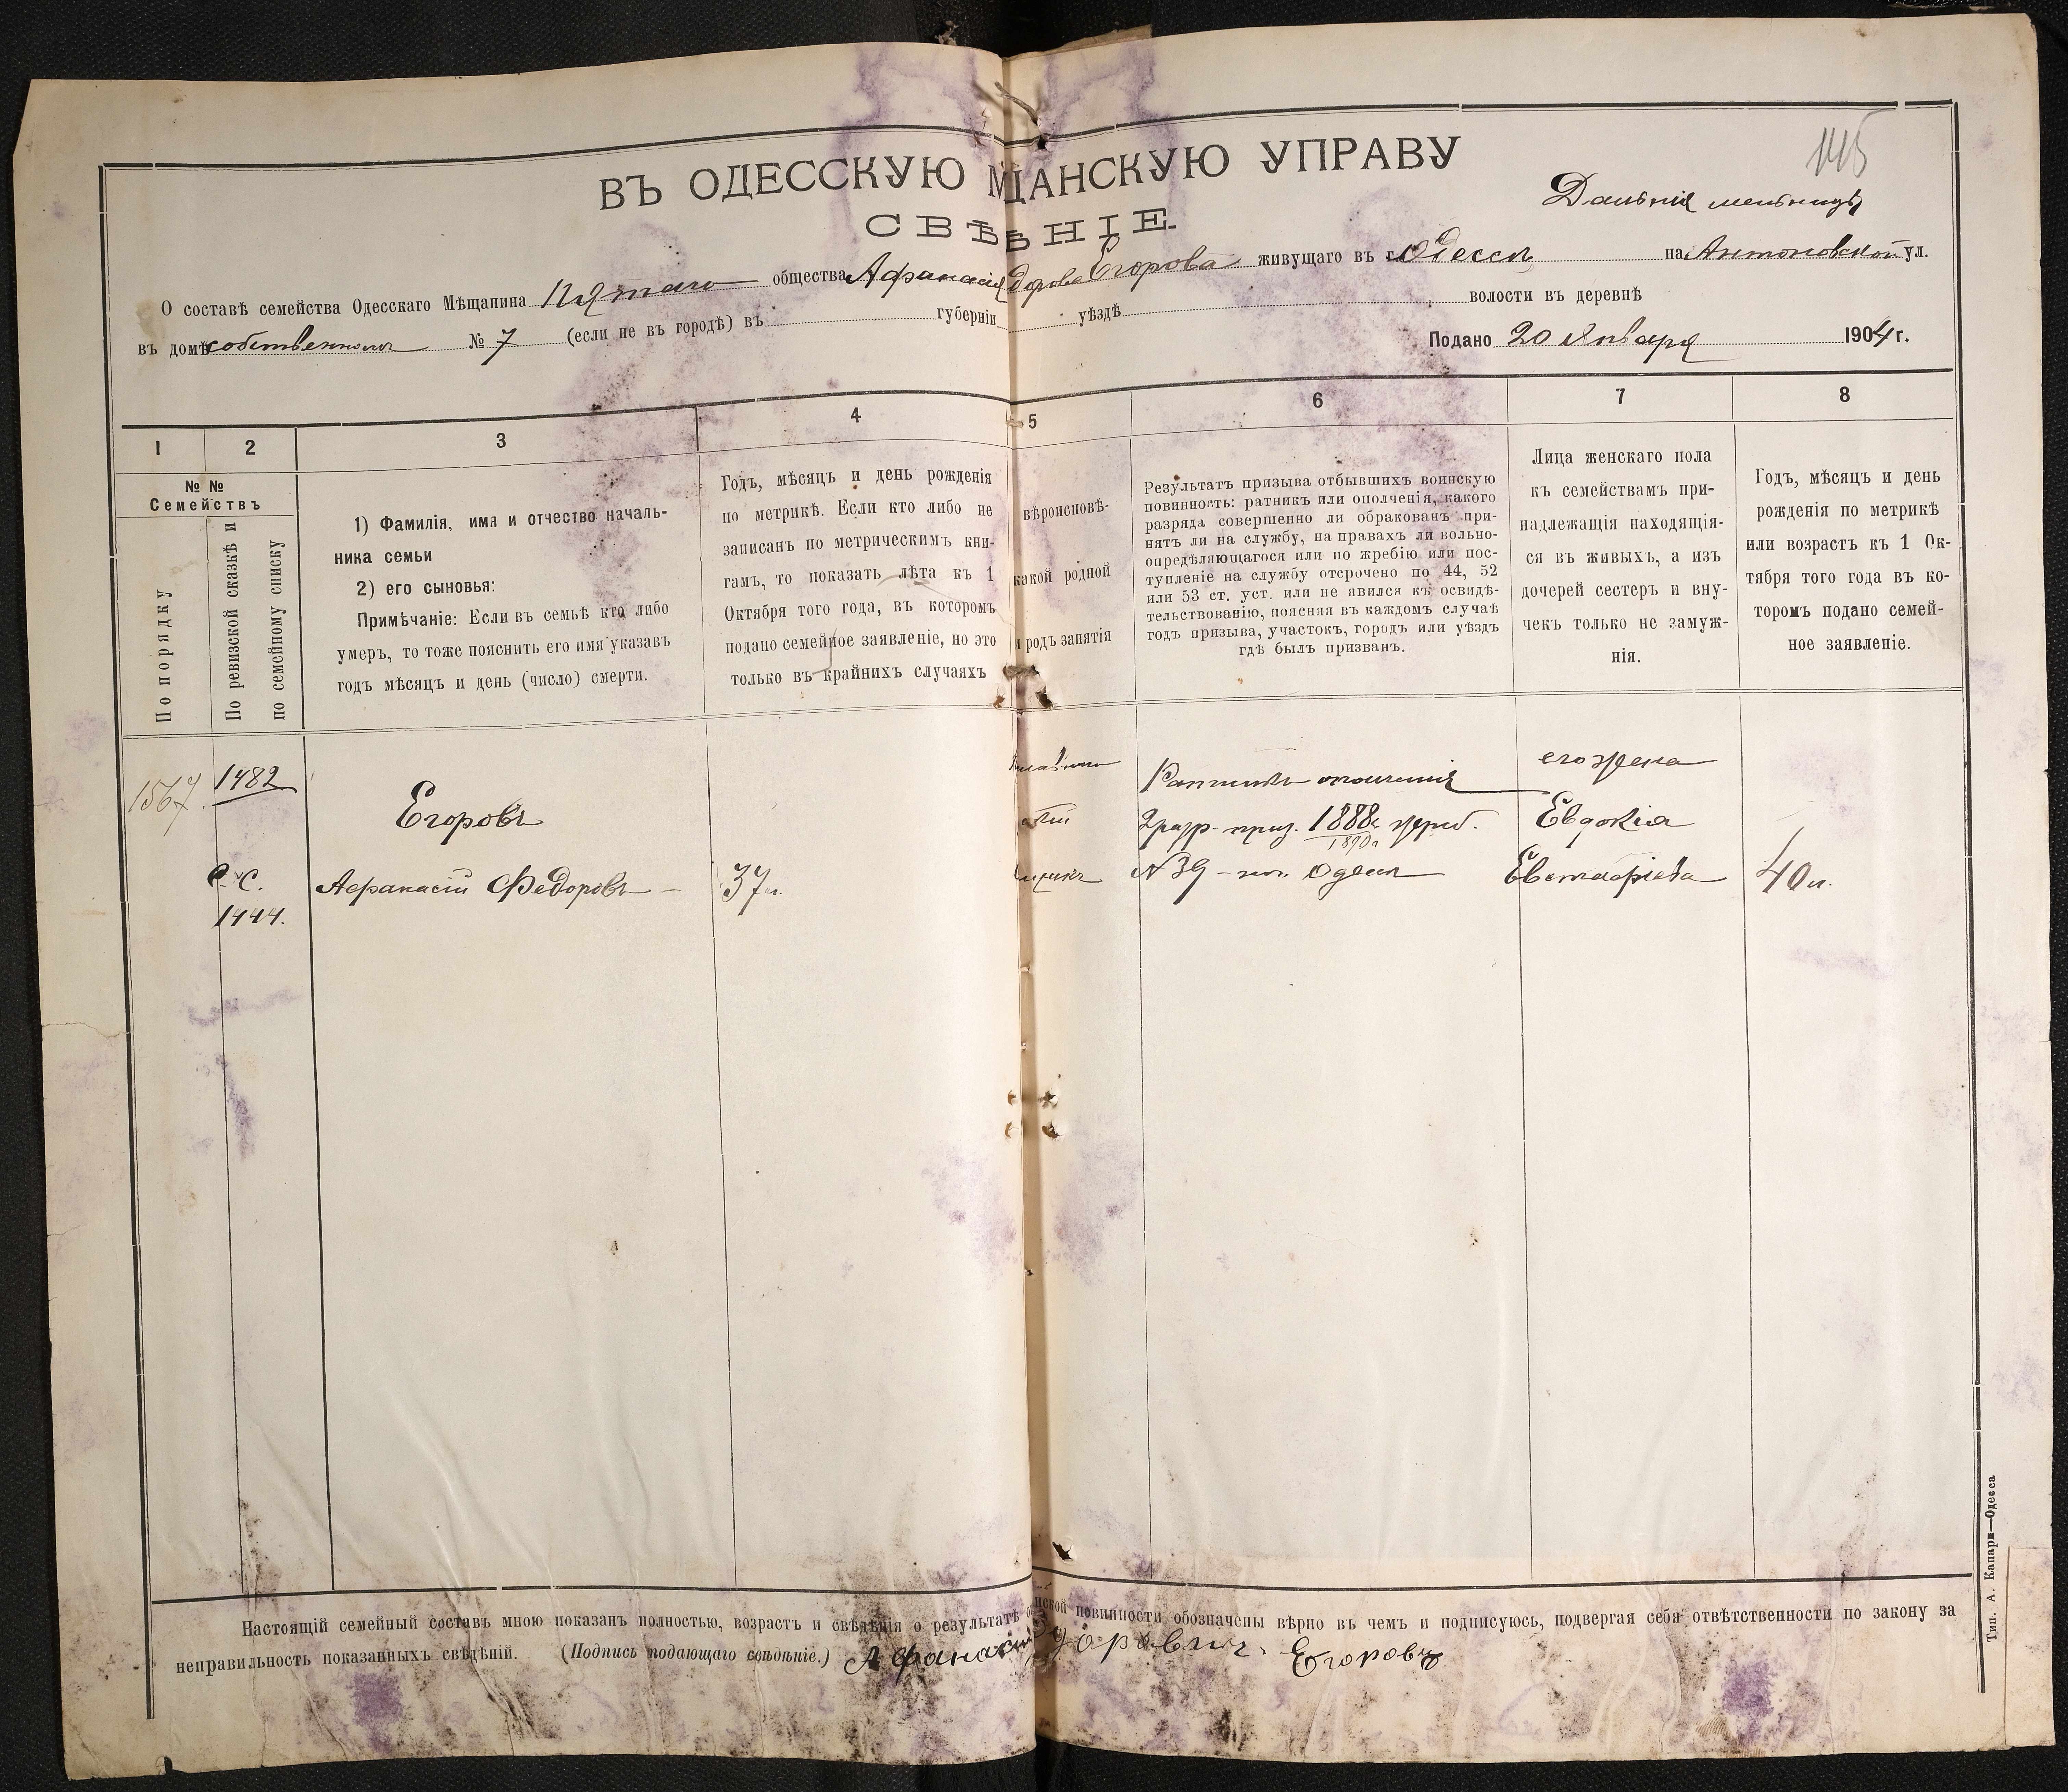 145
ВЪ ОДЕССКУЮ МЩАНСКУЮ УПРАВУ
Дальнія мельницы
СВѢНІЕ.
О составѣ семейства Одесскаго Мѣщанина Пятаго общества Афанасія дорова Егорова живущаго въ г. Одессѣ на Антоновской ул.
въ домѣ собственномъ № 7 (если не въ городѣ) въ губерніи уѣздѣ волости въ деревнѣ
Подано 20 Января 1904 г.
1 2 3 4 5 6 7 8
№ №
Семействъ
По порядку
По ревизской сказкѣ и
по семейному списку
1) Фамилія, имя и отчество началь-
ника семьи
2) его сыновья:
Примѣчаніе: Если въ семьѣ кто либо
умеръ, то тоже пояснить его имя указавъ
годъ мѣсяцъ и день (число) смерти.
Годъ, мѣсяцъ и день рожденія
по метрикѣ. Если кто либо не
записанъ по метрическимъ кни-
гамъ, то показать лѣта къ 1
Октября того года, въ которомъ
подано семейное заявленіе, но это
только въ крайнихъ случаяхъ
вѣроисповѣ-
какой родной
и родъ занятія
Результатъ призыва отбывшихъ воинскую
повинность: ратникъ или ополченія, какого
разряда совершенно ли обракованъ при-
нятъ ли на службу, на правахъ ли вольно-
опредѣляющагося или по жребію или пос-
тупленіе на службу отсрочено по 44, 52
или 53 ст. уст. или не явился къ освидѣ-
тельствованію, поясняя въ каждомъ случаѣ
годъ призыва, участокъ, городъ или уѣздъ
гдѣ былъ призванъ.
Лица женскаго пола
къ семействамъ при-
надлежащія находящія-
ся въ живыхъ, а изъ
дочерей сестеръ и вну-
чекъ только не замуж-
нія.
Годъ, мѣсяцъ и день
рожденія по метрикѣ
или возрастъ къ 1 Ок-
тября того года въ ко-
торомъ подано семей-
ное заявленіе.
1567.
1482
С. С.
1444.
Егоровъ
Афанасій Федоровъ —
37 л.
Ратникъ ополченія
2 разр. приз. 1888 г. жреб.
1890 г.
№ 39 – Одесск
его жена
Евдокія
Евстафіева
40 л.
Настоящій семейный составъ мною показанъ полностью, возрастъ и свѣдѣнія о результатѣ о нской повинности обозначены вѣрно въ чемъ и подписуюсь, подвергая себя отвѣтственности по закону за
неправильность показанныхъ свѣдѣній. (Подпись подающаго свѣдѣніе.) Афанасій доровичъ Егоровъ
Тип. А. Капари—Одесса